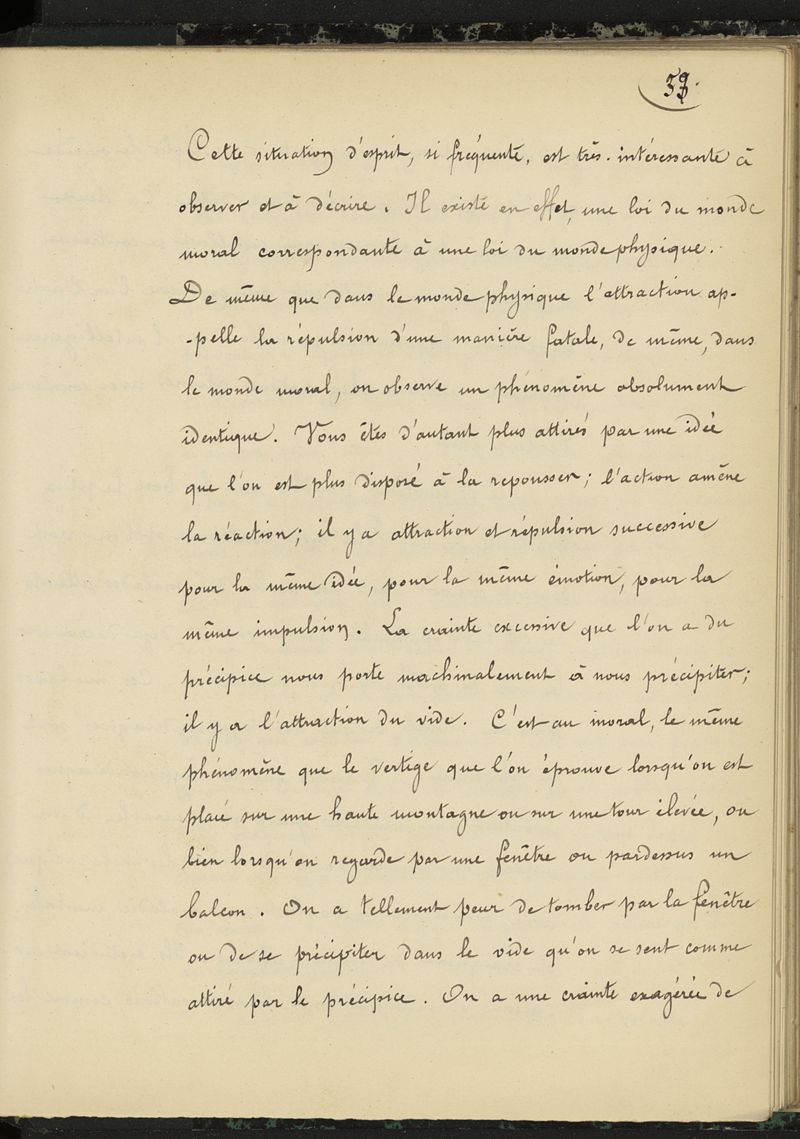 Cette situation d'esprit, si fréquente, est très-intéressante à
observer et à décrire. Il existe en effet, une loi du monde
moral correspondante à une loi du monde physique.
De même que dans le monde physique l'attraction ap-
-pelle la répulsion d'une manière fatale, de même, dans
le monde moral, on observe un phénomène absolument
identique. Vous êtes d'autant plus attirés par une idée
que l'on est plus disposé à la repousser; l'action amène
la réaction; il y a attraction et répulsion successive
pour la même idée, pour la même émotion, pour la
même impulsion. La crainte excessive que l'on a du
précipice nous porte machinalement à nous précipiter;
il y a l'attraction du vide. C'est au moral, le même
phénomène que le vertige que l'on éprouve lorsqu'on est
placé sur une haute montagne ou sur une tour élevée, ou
bien lorsqu'on regarde par une fenêtre ou pardessus un
balcon. On a tellement peur de tomber par la fenêtre
ou de se précipiter dans le vide qu'on se sent comme
attiré par le précipice. On a une crainte exagérée de